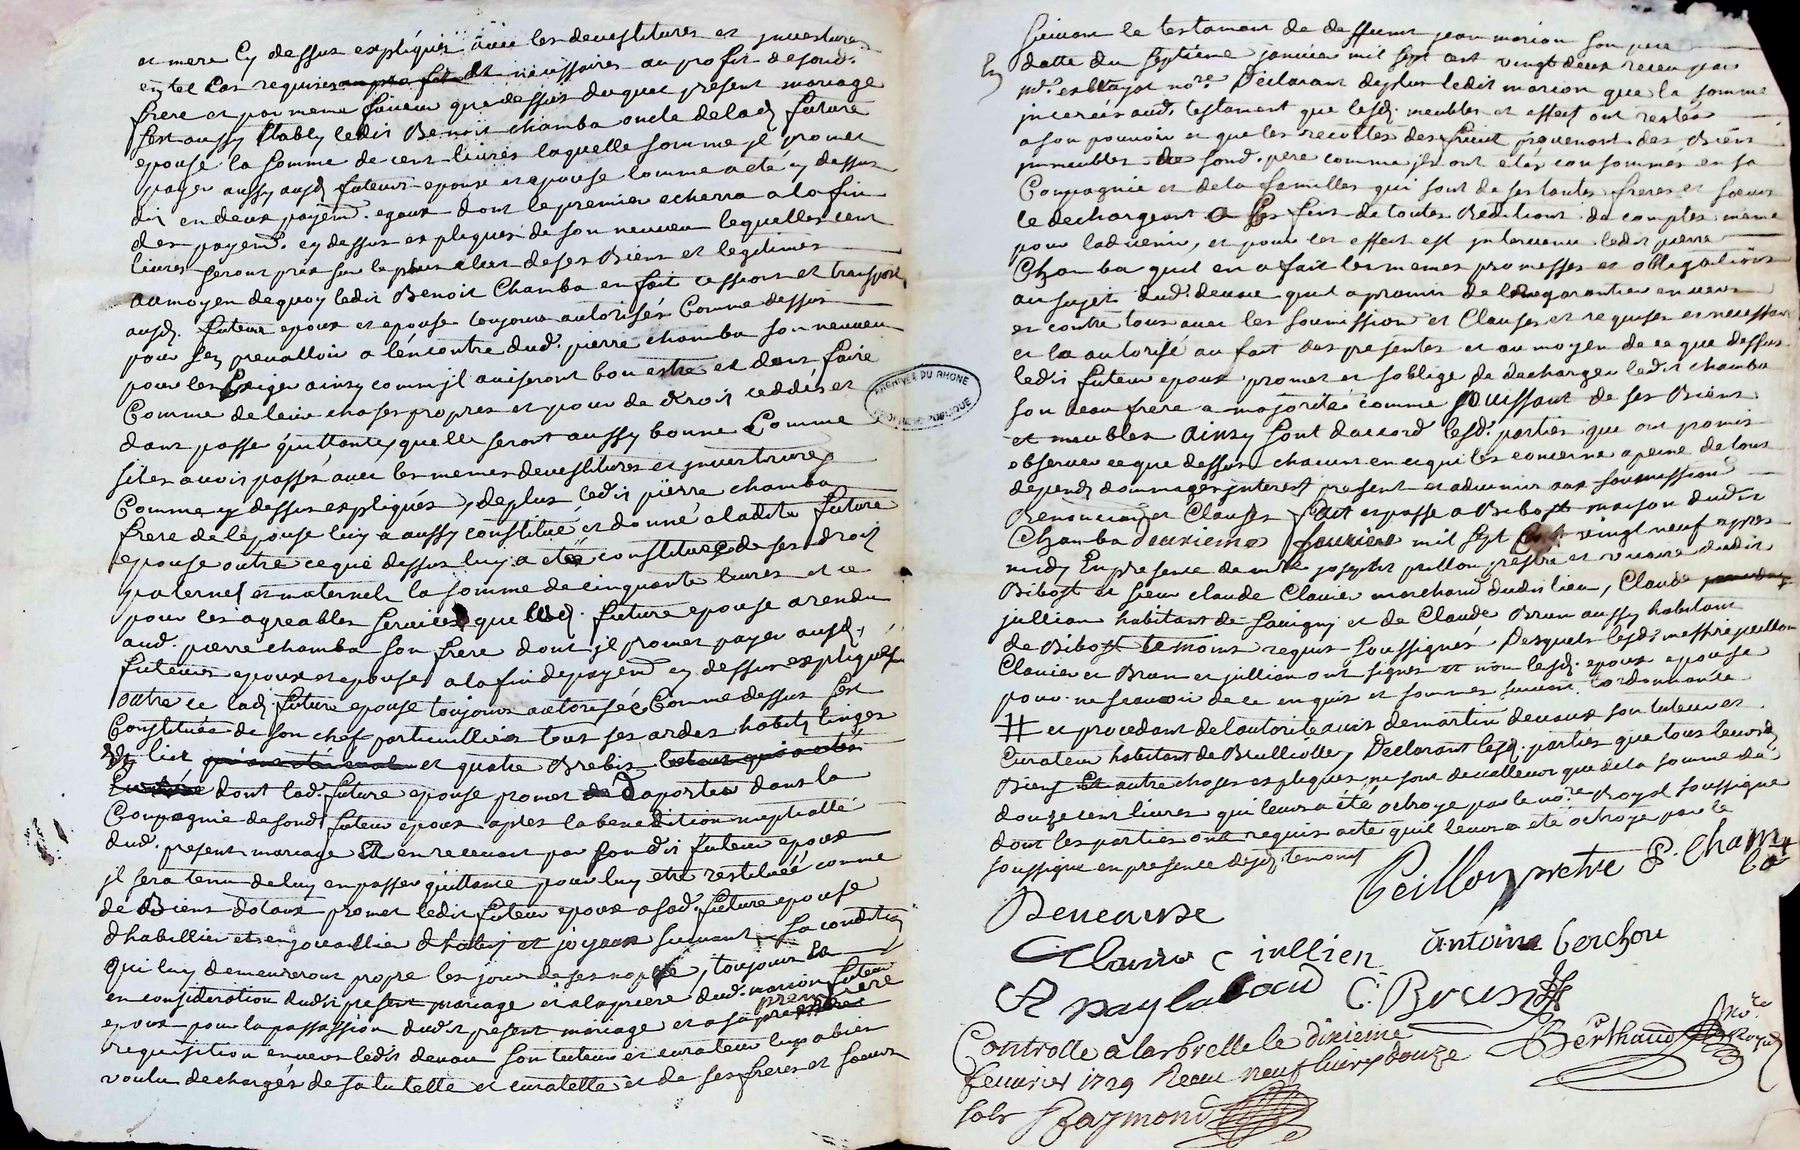 et mere Cy dessus expliqués avec les devestitures et jnvestures
en tel Cas requises et nécessaires au profit de sond.
frere et par meme faveur que dessus duquel présent mariage
sest aussy Etably ledit Benoit chamba oncle de lad. future
epouse la somme de cent livres laquelle somme jl promet
payer aussy ausd. futeurs epoux et epouse comme a eté cy dessus
dit en deux payem. egaux dont le premier echerra a la fin
des payem. cy dessus expliqués de son neuveu lequelles cent
livres seront pris sur le plus clair de ses Biens et legitimes
au moyen de quoy ledit Benoit Chamba en fait cessions et transport
ausd. futeur epoux et epouse toujours autorisés Comme dessus
pour sen prevalloir a lencontre dud. pierre chamba son neuveu
pour les Exiger ainsy comm jl aviseront bon estre et dans faire
Comme de leur choses propres et pour de droit ceddés et
dans passe quittante, quelle seront aussy bonne Comme
sil es avoit passés avec les memes devestitures et jnvestures
Comme cy dessus expliqués, de plus ledit pierre chamba
frere de lepouse luy a aussy constitué et donné a ladite future
epouse outre ce que dessus luy a eté constitué de ses droit
paternel et maternels la somme de cinquante livres et ce
pour les agreables services que lad. future epouse a rendu
aud. pierre chamba son frere dont jl promet payer ausd.
futeurs epoux et epouse, a la fin de payem. cy dessus expliqués
outre ce lad. future epouse toujours autorisée Comme dessus sest
Constituée de son chef particuillier tous ses ardes habits linges
lict et quatre Brebis
dont lad. future epouse promet d'aporter dans la
Compagnie de sond. futeur epoux apres la benediction nuptialle
dud. present mariage Et en recevant par sondit futeur epoux
jl sera tenu de luy en passer quittance pour luy etre restituéé comme
de Biens dotaux promet ledit futeur epoux a sad. future epouse
d'habillier et enjoüaillier d'habits et joyaux suivant sa condition
qui luy demeureront propre les jour de ses nopce, toujours Et
en consideration dudit present mariage et a la priere dud. marion futeur
epoux pour la passassion dudit present mariage et a sa premiere
requisition envers ledit devaux son tuteur et curateur luy a bien
voulu dechargés de sa tutelle et curatelle et de ses freres et soeurs
suivant le testament de deffunt jean marion son pere
En datte du septieme janvier mil sept cent vingt deux receu par
me. no.re Déclarant de plus ledit marion que la somme
jnserés aud. testament que lesd. meubles et effect ont restés
a son pouvoir et que les recoltes des fruit provenant des Biens
jmmeubles de sond. pere comme jls ont etés consommés en sa
Compagnie et de la familles qui sont de ses tantes freres et soeurs
le dechargeant a ces fins de toutes Redittions de comptes meme
pour ladvenir, et pour cet effect est jntervenu ledit pierre
Chamba quil en a fait les memes promesses et obligations
au sujet dud. devaux quil a promis de le garantir envers
et contre tous avec les soumission et Clauses et requises et necessaire
et la autorisé au fait des presentes et au moyen de ce que dessus
ledit futeur epoux promet et soblige de decharger ledit chamba
son beau frere a majorité comme jouissant de ses Biens
et meubles Ainsy sont daccord lesd. parties qui ont promis
observer ce que dessus chacun en ce qui les concerne a peine de tous
depends dommages jnterest present et advenir aux soumission
Renonciaon et Clauses fait et passé a Bibost maison dudit
Chamba deuxieme fevrier mil sept Cent vingt neuf appres
midy En presence de me joseph peillon prestre et vicaire dudit
Bibost et sieur claude Clavier marchand dudit lieu, Claude
jullien habitant de Savigny et de Claude Brun aussy habitant
de Bibost temoins requis soussignés Desquels lesd. messire peillon
Clavier et Brun et jullien ont signés et non lesd. epoux epouse
pour ne scavoir de ce enquis et sommés suivant l'ordonnance
# et procedant de l'autorité avis de martin devaux son tuteur et
Curateur habitant de Brullioles, Declarant lesd. parties que tous leursd.
Biens Et autre choses expliqués ne sont de valleur que de la somme de
douze cent livres qui leur a été octroye par le no.re Royal soussigné
dont les parties ont requis acte quil leur a eté octroye par le
soussigné en presence desd. temoins
Peillon prestre P. Cham
ba
Deveause
Clavier C iullien Antoine berchou
C. Brun
Berthaud no.re Royal
Controllé a larbrelle le dixieme
fevrier 1729 Receu neuf livres douze
sols Raymond
ARCHIVES DU RHONE